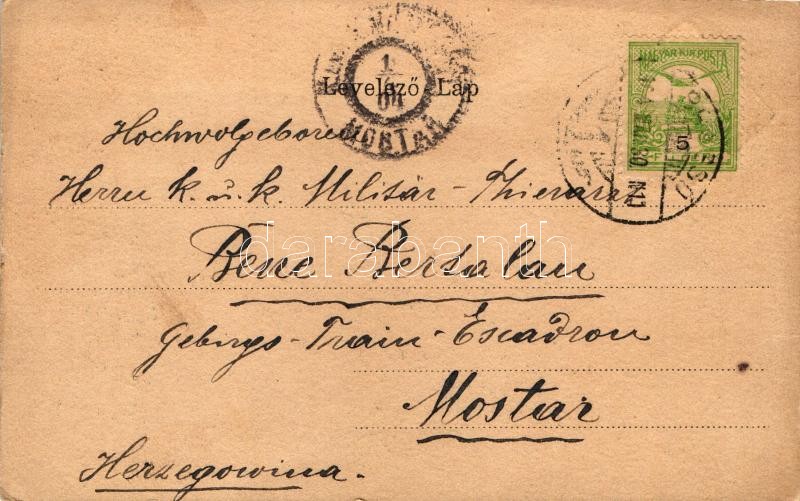 MAGYAR KIR. POSTA
5
1
04
MOSTAR
Levelező-Lap
Hochwolgeboren
Herrn k. u. k. Militär-Thierarzt
Bene Bertalan
Gebirgs-Train-Escadron
Mostar
Herzegowina.
darabanth